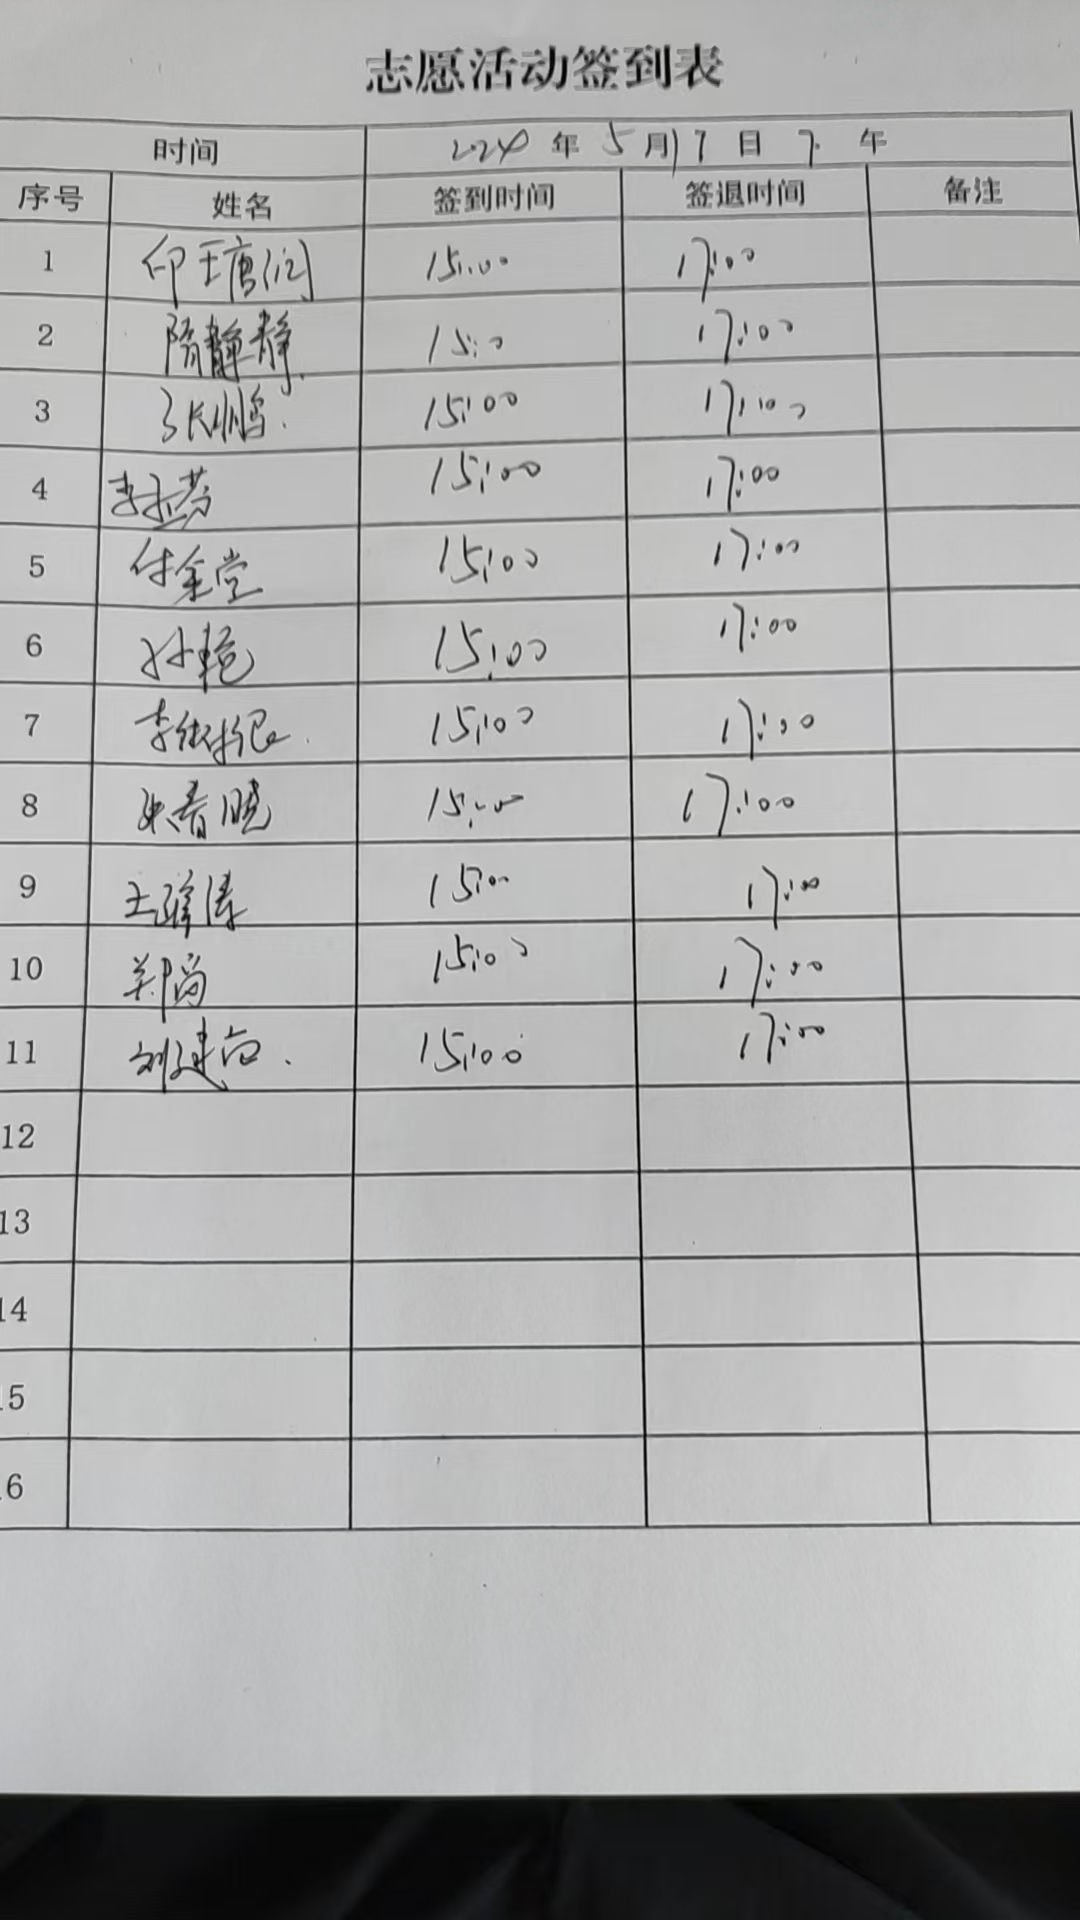 志愿活动签到表
时间 2024 年 5 月 17 日 下 午
序号 姓名 签到时间 签退时间 备注
1 15:00 17:00
2 隋静静 15:0 17:00
3 张鹏 15:00 17:00
4 15:00 17:00
5 付金堂 15:00 17:00
6 孙艳 15:00 17:00
7 李 15:00 17:00
8 朱春晓 15:00 17:00
9 王 涛 15:00 17:00
10 郑尚 15:00 17:00
11 刘建 15:00 17:00
12
13
14
15
16